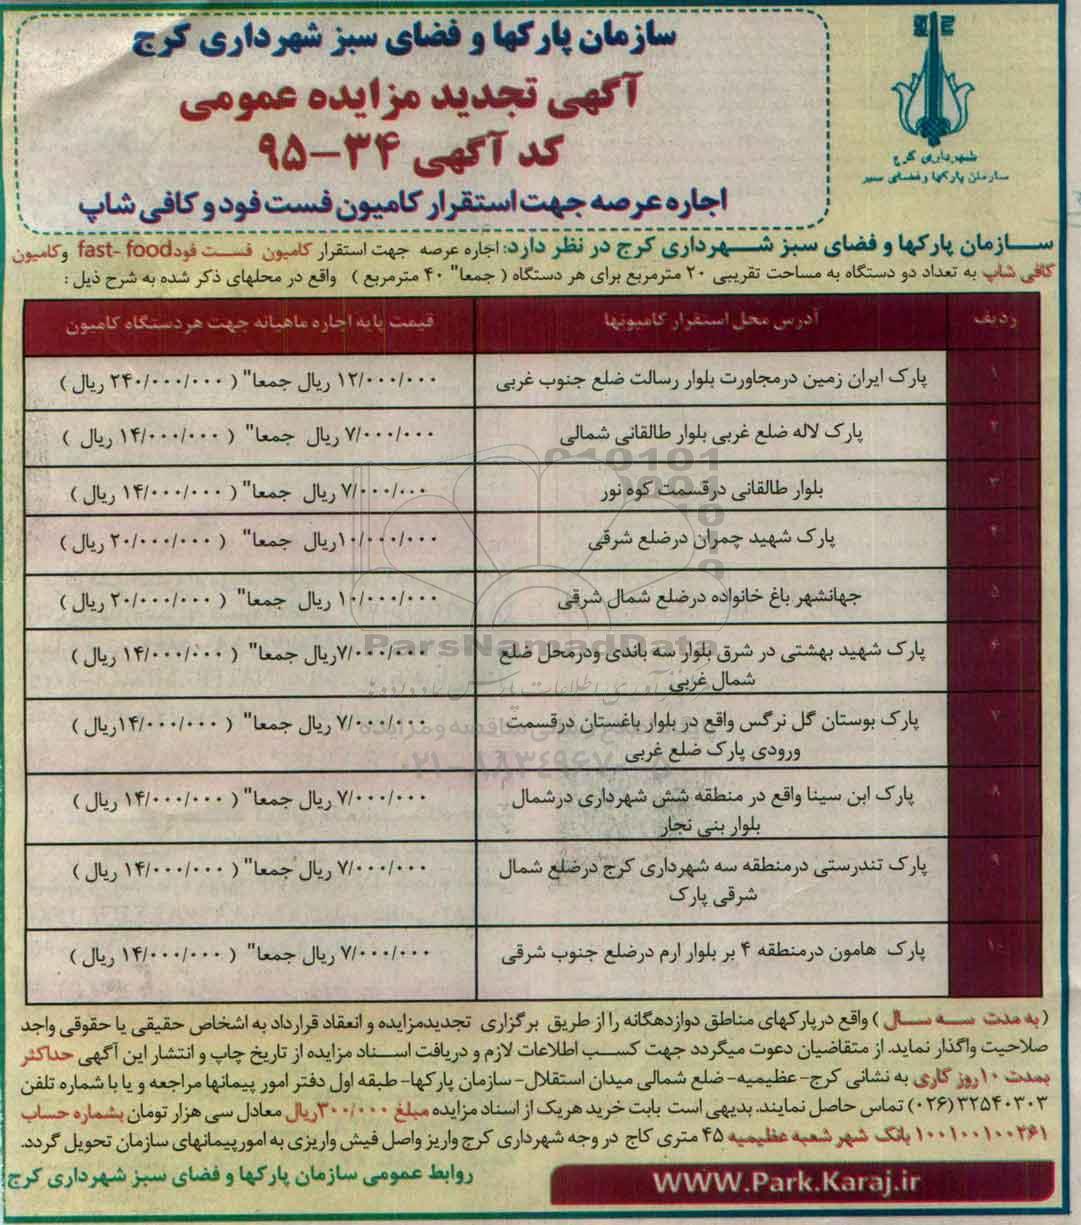 سازمان پارکها و فضای سبز شهرداری کرج
آگهی تجدید مزایده عمومی
کد آگهی ۳۴-۹۵
اجاره عرصه جهت استقرار کامیون فست فود و کافی شاپ
شهرداری کرج
سازمان پارکها و فضای سبز
سازمان پارکها و فضای سبز شهرداری کرج در نظر دارد: اجاره عرصه جهت استقرار کامیون فست فود fast- food وکامیون
کافی شاپ به تعداد دو دستگاه به مساحت تقریبی ۲۰ مترمربع برای هر دستگاه ( جمعا" ۴۰ مترمربع ) واقع در محلهای ذکر شده به شرح ذیل :
ردیف آدرس محل استقرار کامیونها قیمت پایه اجاره ماهیانه جهت هر دستگاه کامیون
۱ پارک ایران زمین درمجاورت بلوار رسالت ضلع جنوب غربی ۱۲/۰۰۰/۰۰۰ ریال جمعا" ( ۲۴۰/۰۰۰/۰۰۰ ریال )
۲ پارک لاله ضلع غربی بلوار طالقانی شمالی ۷/۰۰۰/۰۰۰ ریال جمعا" ( ۱۴/۰۰۰/۰۰۰ ریال )
۳ بلوار طالقانی درقسمت کوه نور ۷/۰۰۰/۰۰۰ ریال جمعا" ( ۱۴/۰۰۰/۰۰۰ ریال )
۴ پارک شهید چمران درضلع شرقی ۱۰/۰۰۰/۰۰۰ریال جمعا" ( ۲۰/۰۰۰/۰۰۰ ریال )
۵ جهانشهر باغ خانواده درضلع شمال شرقی ۱۰/۰۰۰/۰۰۰ ریال جمعا" ( ۲۰/۰۰۰/۰۰۰ ریال )
۶ پارک شهید بهشتی در شرق بلوار سه باندی ودرمحل ضلع ۷/۰۰۰/۰۰۰ریال جمعا" ( ۱۴/۰۰۰/۰۰۰ ریال )
شمال غربی
۷ پارک بوستان گل نرگس واقع در بلوار باغستان درقسمت ۷/۰۰۰/۰۰۰ ریال جمعا" ( ۱۴/۰۰۰/۰۰۰ریال )
ورودی پارک ضلع غربی
۸ پارک ابن سینا واقع در منطقه شش شهرداری درشمال ۷/۰۰۰/۰۰۰ ریال جمعا" ( ۱۴/۰۰۰/۰۰۰ ریال )
بلوار بنی نجار
۹ پارک تندرستی درمنطقه سه شهرداری کرج درضلع شمال ۷/۰۰۰/۰۰۰ ریال جمعا" ( ۱۴/۰۰۰/۰۰۰ ریال )
شرقی پارک
۱۰ پارک هامون درمنطقه ۴ بر بلوار ارم درضلع جنوب شرقی ۷/۰۰۰/۰۰۰ ریال جمعا" ( ۱۴/۰۰۰/۰۰۰ ریال )
ParsNamadData
( به مدت سه سال ) واقع درپارکهای مناطق دوازدهگانه را از طریق برگزاری تجدیدمزایده و انعقاد قرارداد به اشخاص حقیقی یا حقوقی واجد
صلاحیت واگذار نماید. از متقاضیان دعوت میگردد جهت کسب اطلاعات لازم و دریافت اسناد مزایده از تاریخ چاپ و انتشار این آگهی حداکثر
بمدت ۱۰ روز کاری به نشانی کرج- عظیمیه- ضلع شمالی میدان استقلال- سازمان پارکها- طبقه اول دفتر امور پیمانها مراجعه و یا با شماره تلفن
۳۲۵۴۰۳۰۳(۰۲۶) تماس حاصل نمایند. بدیهی است بابت خرید هریک از اسناد مزایده مبلغ ۳۰۰/۰۰۰ریال معادل سی هزار تومان بشماره حساب
۱۰۰۱۰۰۱۰۰۳۶۱ بانک شهر شعبه عظیمیه ۴۵ متری کاج در وجه شهرداری کرج واریز واصل فیش واریزی به امورپیمانهای سازمان تحویل گردد.
روابط عمومی سازمان پارکها و فضای سبز شهرداری کرج
WWW.Park.Karaj.ir